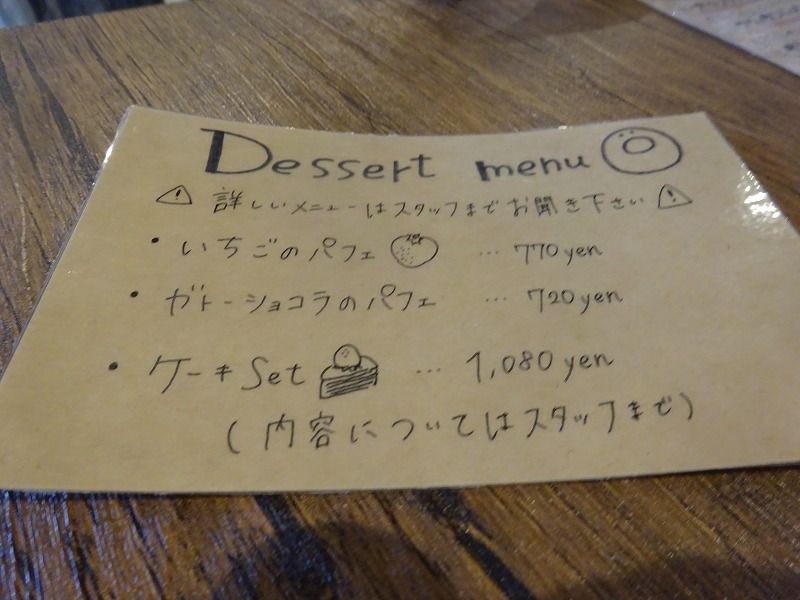 Dessert menu
詳しいメニューはスタッフまでお聞き下さい
・いちごのパフェ … 770yen
・ガトーショコラのパフェ … 720yen
・ケーキSet … 1,080yen
(内容についてはスタッフまで)